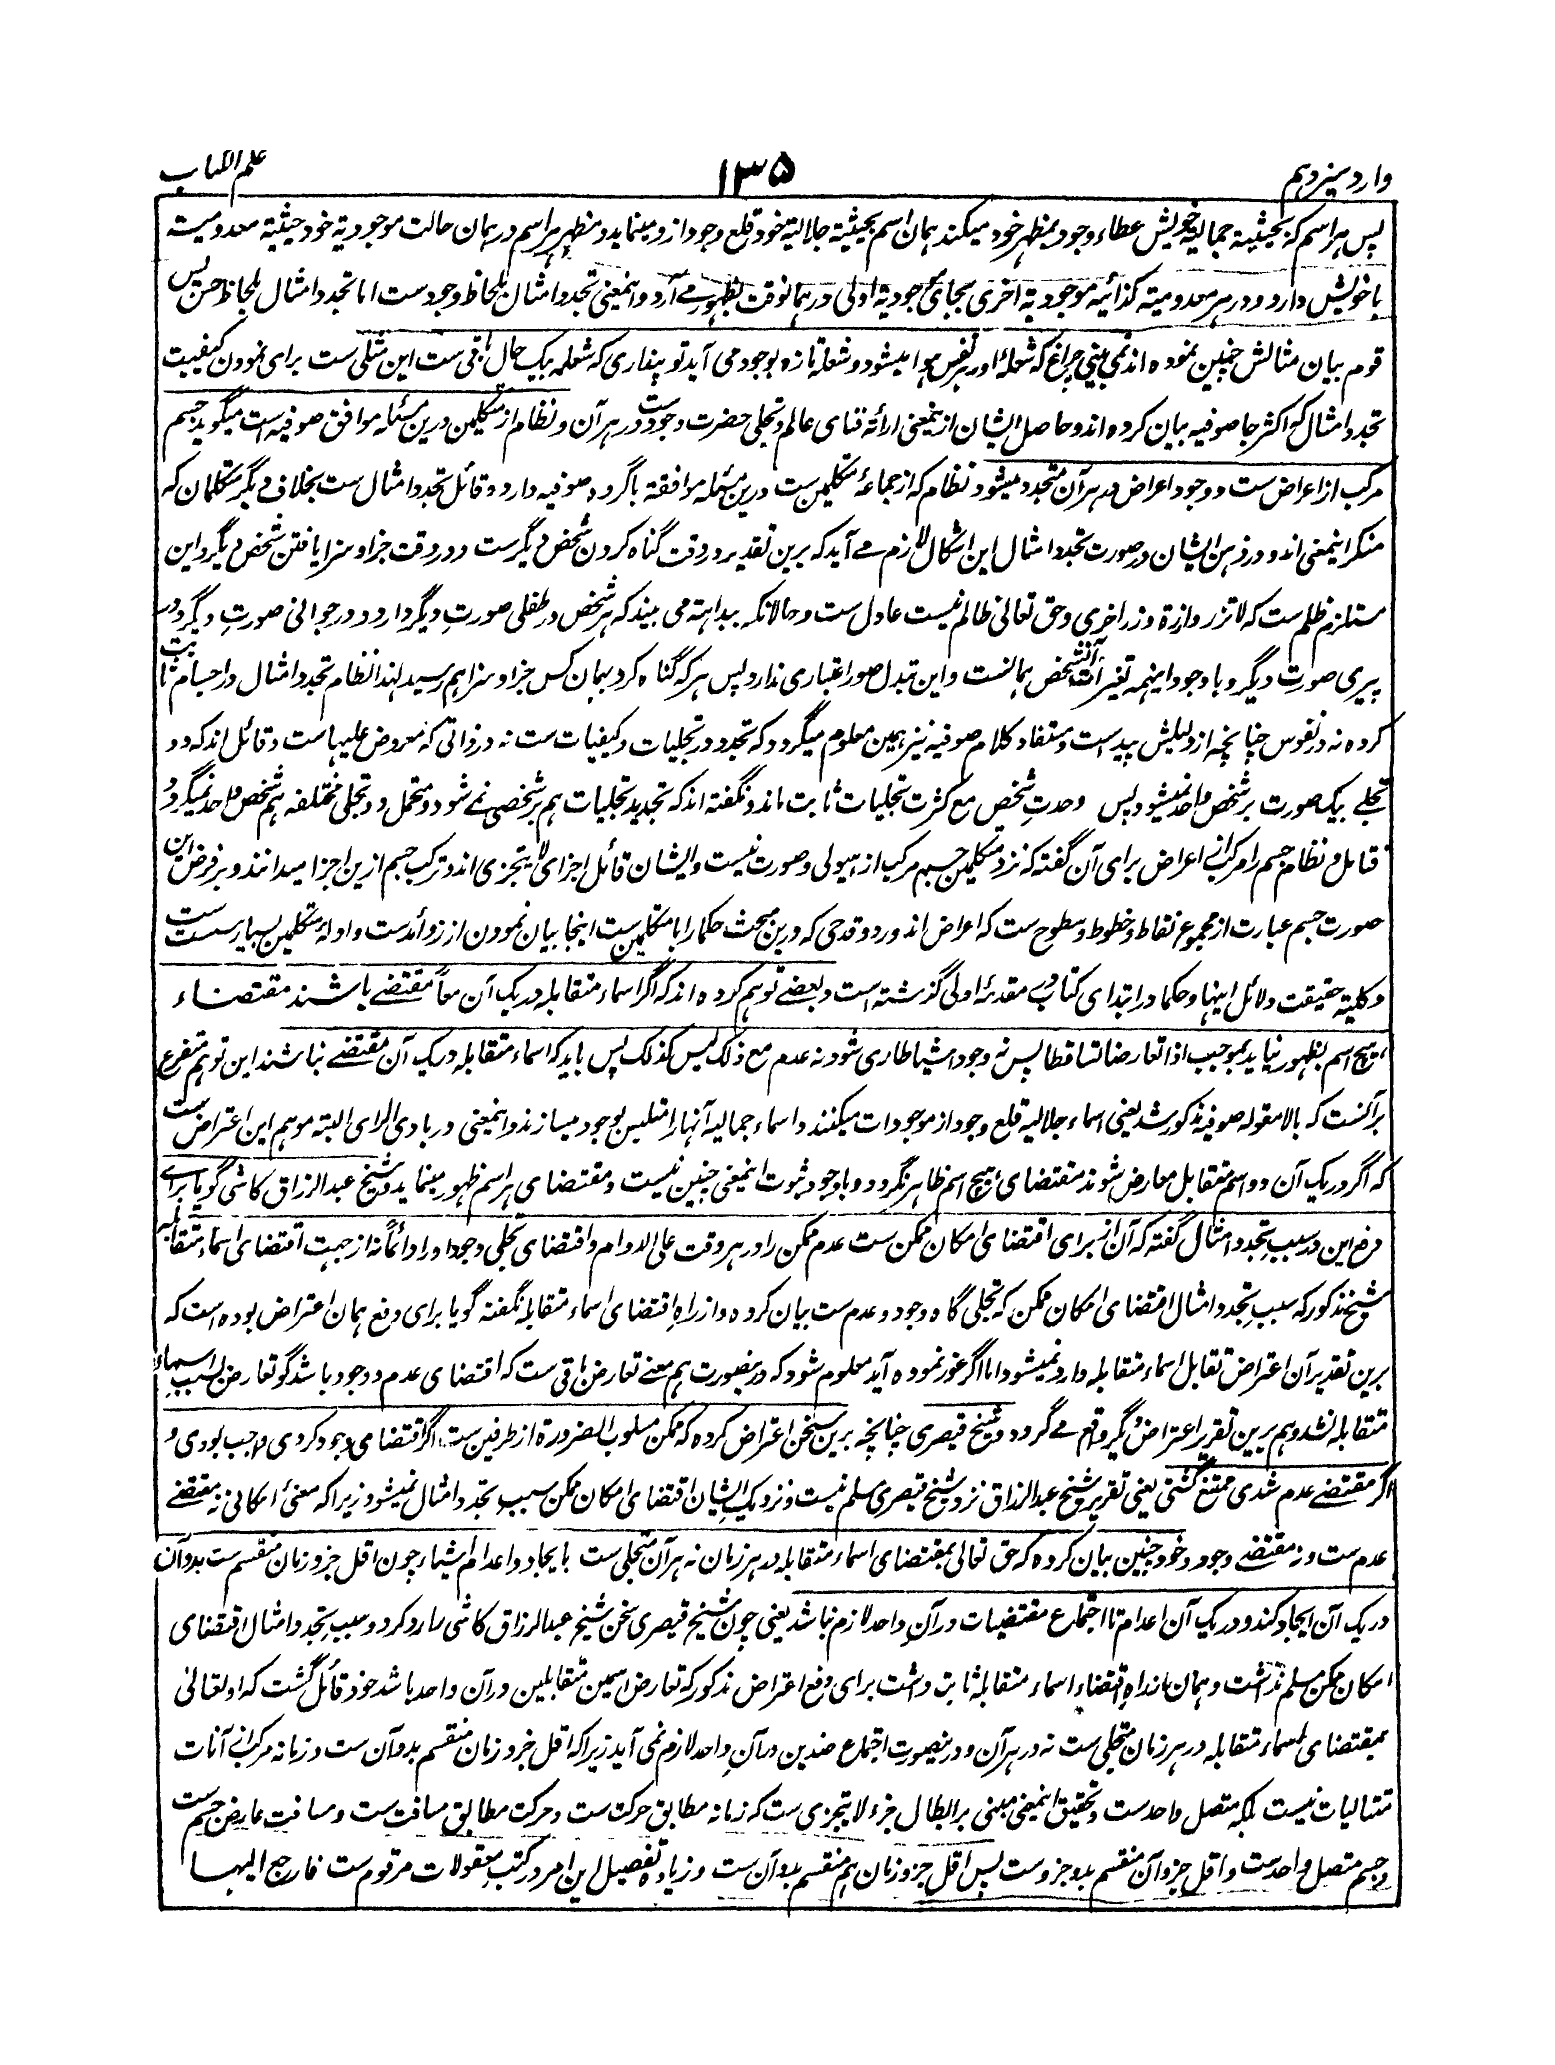 وارد سیزدهم
۱۳۵
علم الکتاب
پس هر اسم که بحیثیة جمالیهٔ خویش عطاء وجود بمظهر خود میکند همان اسم بحیثیة جلالیهٔ خود قلع وجود ازو مینماید و مظهر هر اسم در همان حالت موجودیة خود حیثیة معدومیت
با خویش دارد و در هر معدومیته کذائیه موجودیة اخری بجای موجودیة اولی در همانوقت بظهور می آرد و اینمعنی تجدد امثال بلحاظ وجودست اما تجدد امثال بلحاظ حس پس
قوم بیان مثالش چنین نموده اند نمی بینی چراغ که شعلهٔ او در نفس هوا میشود و شعلهٔ تازه بوجود می آید تو پنداری که شعله بیک حال باقی ست این مثلی ست برای نمودن کیفیت
تجدد امثال که اکثر جا صوفیه بیان کرده اند و حاصل ایشان ازینمعنی ارائه فنای عالم و تجلی حضرت وجودست در هر آن و نظام از متکلمین درین مسئله موافق صوفیه است میگوید جسم
مرکب از اعراض ست و وجود اعراض در هر آن متجدد میشود نظام که از جماعهٔ متکلمین ست درین مسئله موافقة با گروه صوفیه دارد و قائل تجدد امثال ست بخلاف دیگر متکلمان که
منکر اینمعنی اند و در ذهن ایشان در صورت تجدد امثال این اشکال لازم می آید که برین تقدیر در وقت گناه کردن شخص دیگرست و در وقت جزا و سزا یافتن شخص دیگر و این
مستلزم ظلم ست که لا تزر وازرة وزر اخری و حق تعالی ظالم نیست عادل ست و حالانکه ببداهة می بیند که هر شخص در طفلی صورت دیگر دارد و در جوانی صورت دیگر و در
پیری صورت دیگر و با وجود اینهمه تغیر آن شخص همانست و این تبدل صور اعتباری ندارد پس هر که گناه کرد بهمان کس جزا و سزا هم رسید لهذا نظام تجدد امثال در اجسام ثابت
کرده نه در نفوس چنانچه از دلیلش پیداست و مستفاد کلام صوفیه نیز همین معلوم میگردد که تجدد در تجلیات و کیفیات ست نه در ذواتی که معروض علیهاست و قائل اند که دو
تجلی بیک صورت بر شخص واحد نمیشود پس وحدت شخص مع کثرت تجلیات ثابت ماند و نگفته اند که تجدید تجلیات هم بر شخصی نمی شود و متحمل دو تجلی مختلفه هم شخص واحد نمیگردد
فتامل و نظام جسم را مرکب از اعراض برای آن گفته که نزد متکلمین جسم مرکب از هیولی و صورت نیست و ایشان قائل اجزای لا یتجزی اند و ترکب جسم ازین اجزا میدانند و بر فرض این
صورت جسم عبارت از مجموع نقاط و خطوط و سطوح ست که اعراض اند و رد و قدحی که درین مبحث حکما را با متکلمین ست اینجا بیان نمودن از زوائدست و ادلهٔ متکلمین بسیار سست ست
و کلیة حقیقت دلائل اینها و حکما در ابتدای کتاب در مقدمهٔ اولی گذشته است و بعضی توهم کرده اند که اگر اسماء متقابله در یک آن معاً مقتضی باشند مقتضاء
هیچ اسم بظهور نیاید بموجب اذا تعارضا تساقطا پس نه وجود اشیا طاری شود نه عدم مع ذلک لیس کذلک پس باید که اسماء متقابله در یک آن مقتضی نباشند این توهم متفرع
بر آنست که بالا مقوله صوفیه مذکور شد یعنی اسماء جلالیه قلع وجود از موجودات میکنند و اسماء جمالیه آنها را متلبس بوجود میسازند و اینمعنی در بادی الرای البته موهم این اعتراض ست
که اگر در یک آن دو اسم متقابل معارض شوند مقتضای هیچ اسم ظاهر نگردد و با وجود ثبوت اینمعنی چنین نیست و مقتضای هر اسم ظهور مینماید و شیخ عبدالرزاق کاشی گویا برای
دفع این در سبب تجدد امثال گفته که آن از برای اقتضای امکان ممکن ست عدم ممکن را در هر وقت علی الدوام و اقتضای تجلی وجود او را دائماً نه از جهت اقتضای اسماء متقابله
شیخ مذکور که سبب تجدد امثال اقتضای امکان ممکن که تجلی گاه وجود و عدم ست بیان کرده و از راه اقتضای اسماء متقابله نگفته گویا برای دفع همان اعتراض بوده است که
برین تقدیر آن اعتراض تقابل اسماء متقابله وارد نمیشود اما اگر غور نموده آید معلوم شود که درینصورت هم معنی تعارض باقی ست که اقتضای عدم و وجود باشد گو تعارض بسبب اسماء
متقابله نشد و هم برین تقریر اعتراض دیگر واقع می گردد و شیخ قیصری چنانچه برین سخن اعتراض کرده که ممکن مسلوب الضرورة از طرفین ست اگر اقتضای وجود کردی واجب بودی و
اگر مقتضی عدم شدی ممتنع گشتی یعنی تقریر شیخ عبدالرزاق نزد شیخ قیصری مسلم نیست و نزدیک ایشان اقتضای امکان ممکن سبب تجدد امثال نمیشود زیرا که معنیٔ امکانی نه مقتضی
عدم ست و نه مقتضی وجود و خود چنین بیان کرده که حق تعالی بمقتضای اسماء متقابله در هر زمان نه هر آن متجلی ست بایجاد و اعدام اشیاء چون اقل جزو زمان منقسم ست بدو آن
در یک آن ایجاد کند و در یک آن اعدام تا اجتماع مقتضیات در آن واحد لازم نباشد یعنی چون شیخ قیصری سخن شیخ عبدالرزاق کاشی را رد کرد و سبب تجدد امثال اقتضای
امکان ممکن مسلم نداشت و همان از راه اقتضاء اسماء متقابله ثابت داشت برای دفع اعتراض مذکور که تعارض اسمین متقابلین در آن واحد باشد خود قائل گشت که او تعالی
بمقتضای اسماء متقابله در هر زمان متجلی ست نه در هر آن و درینصورت اجتماع ضدین در آن واحد لازم نمی آید زیرا که اقل جزو زمان منقسم بدو آن ست و زمانه مرکب از آنات
متتالیات نیست بلکه متصل واحدست و تحقیق اینمعنی مبنی بر ابطال جزء لا یتجزی ست که زمانه مطابق حرکت ست و حرکت مطابق مسافت ست و مسافت عارض جسم ست
و جسم متصل واحدست و اقل جزو آن منقسم بدو جزوست پس اقل جزو زمان هم منقسم بدو آن ست و زیاده تفصیل این امر در کتب معقولات مرقوم ست فارجع الیها